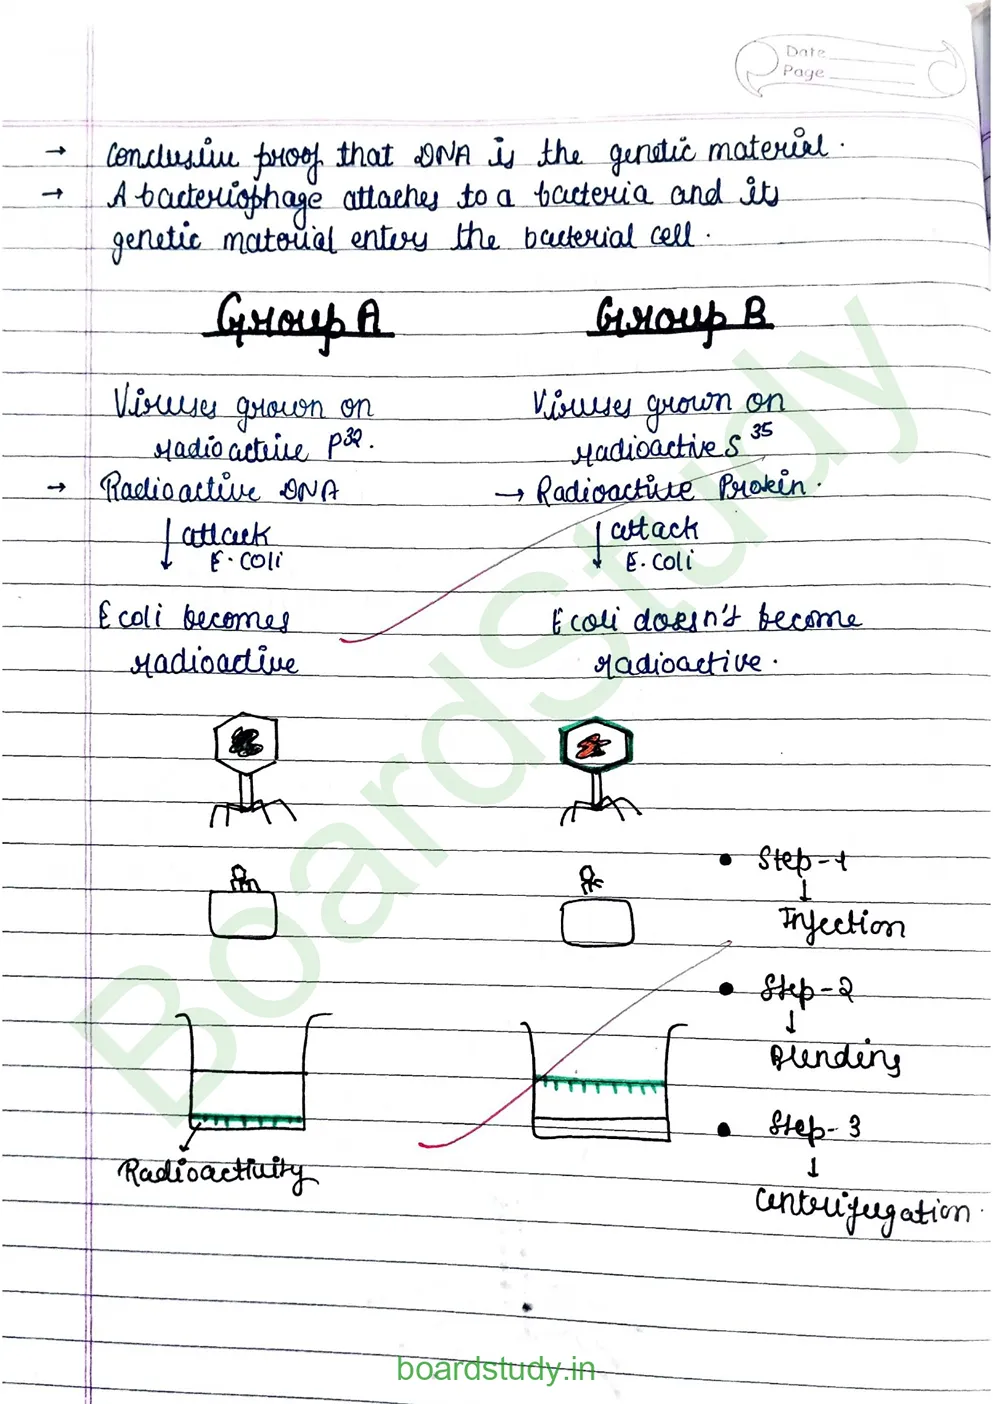 Date
Page
→ Conclusive proof that DNA is the genetic material.
→ A bacteriophage attaches to a bacteria and its
genetic material enters the bacterial cell.
Group A
Group B
Viruses grown on
radioactive P32.
→ Radioactive DNA
attack
E.coli
E coli becomes
radioactive
Viruses grown on
radioactive S35
→ Radioactive Protein.
attack
E.coli
E coli doesn't become
radioactive.
• Step-1
↓
Injection
• Step-2
↓
Blending
• Step-3
↓
Centrifugation.
Radioactivity
BoardStudy
boardstudy.in